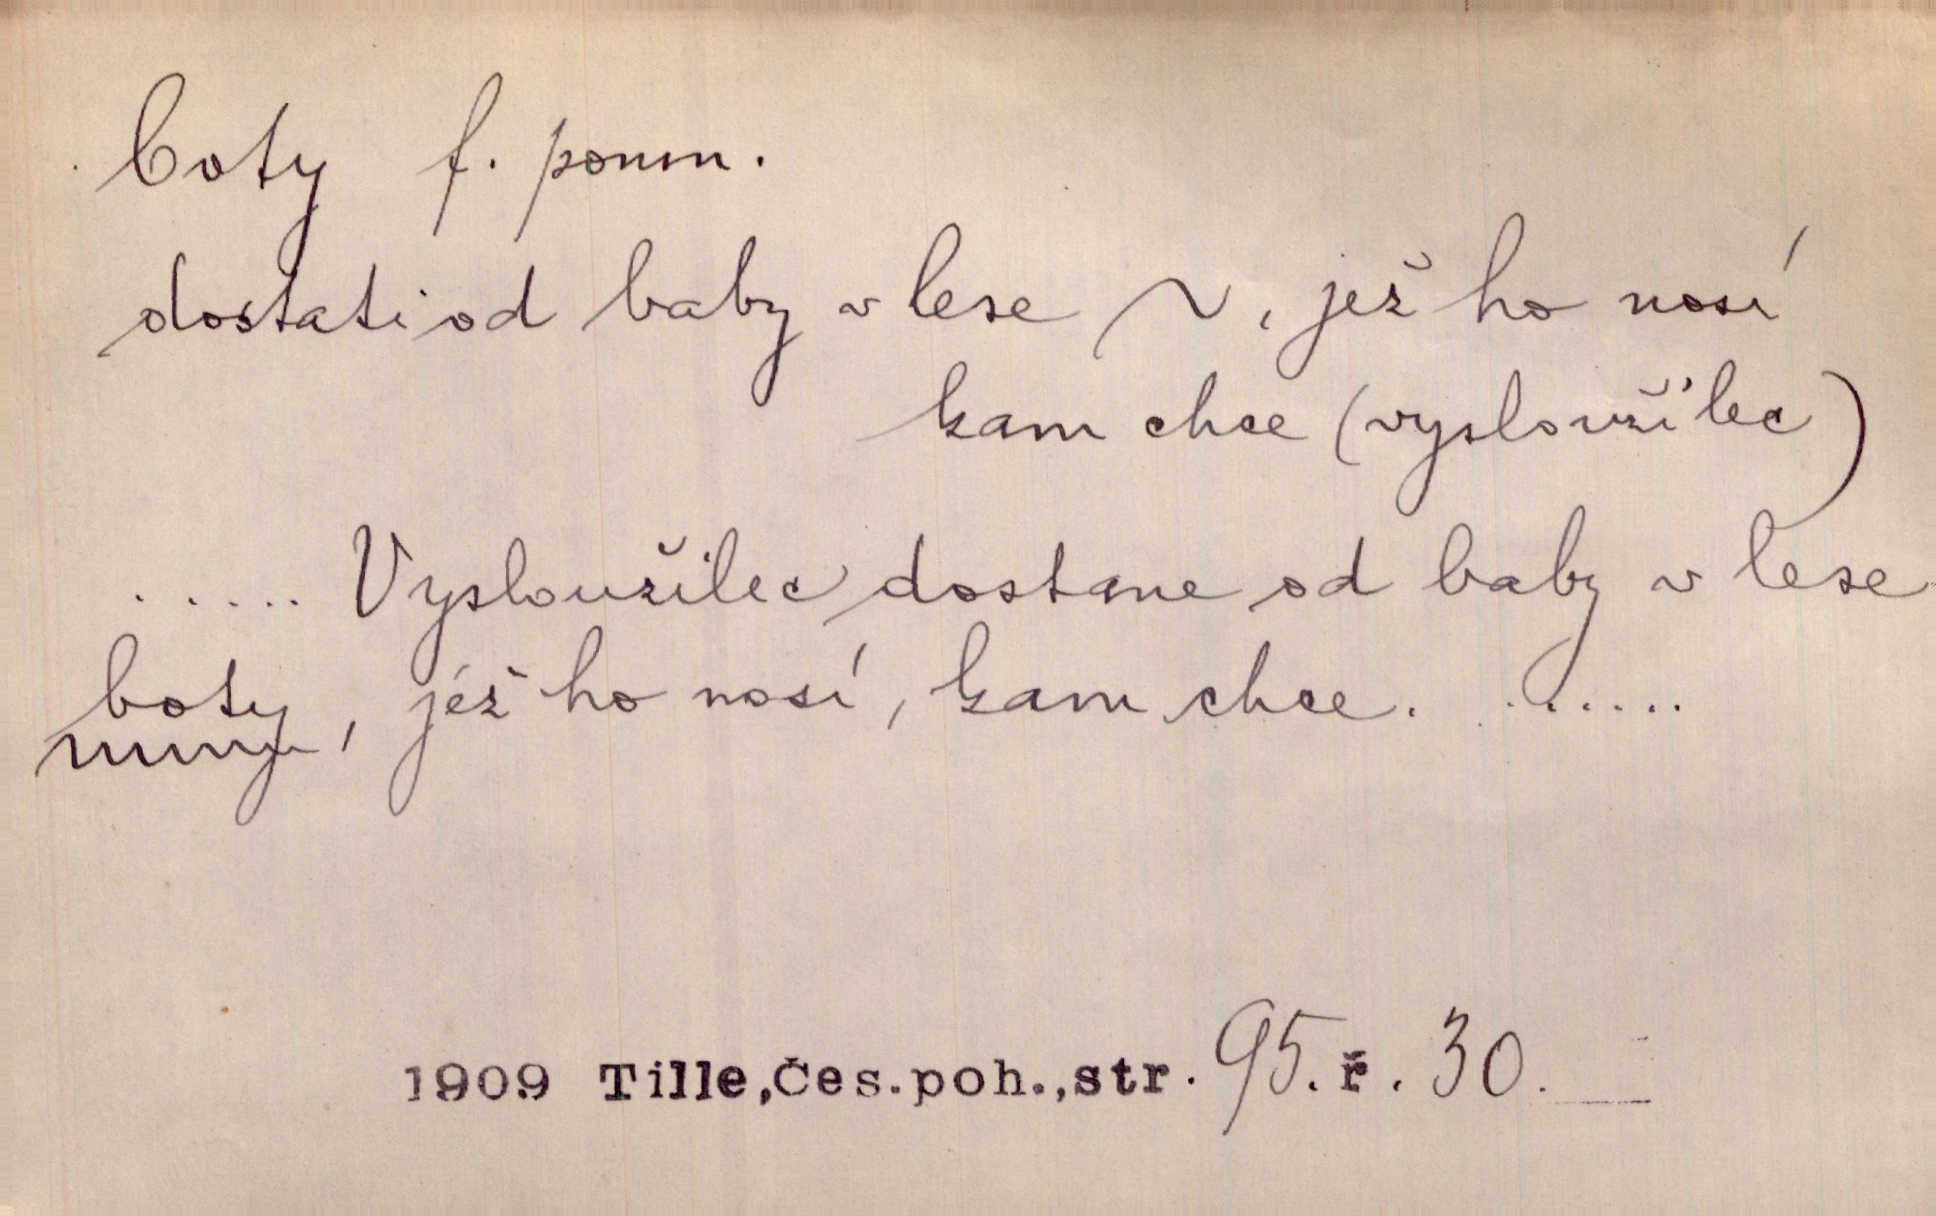 boty f. pomn.
dostati od baby v lese ~, jež ho nosí
kam chce (vysloužilec)
..... Vysloužilec dostane od baby v lese
boty, jež ho nosí, kam chce. .......
1909 Tille,Čes.poh.,str. 95. ř. 30.